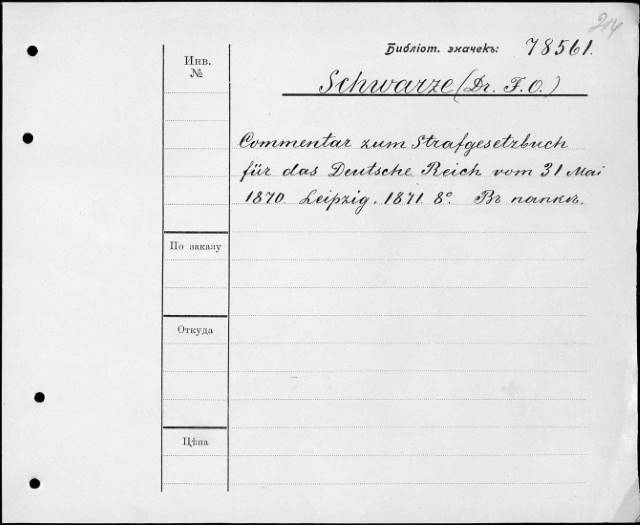 214
Библіот. значекъ: 78561.
Инв.
№
Schwarze (Dr. F. O.)
Commentar zum Strafgesetzbuch
für das Deutsche Reich vom 31 Mai
1870. Leipzig. 1871. 8°. Въ папкѣ.
По заказу
Откуда
Цѣна